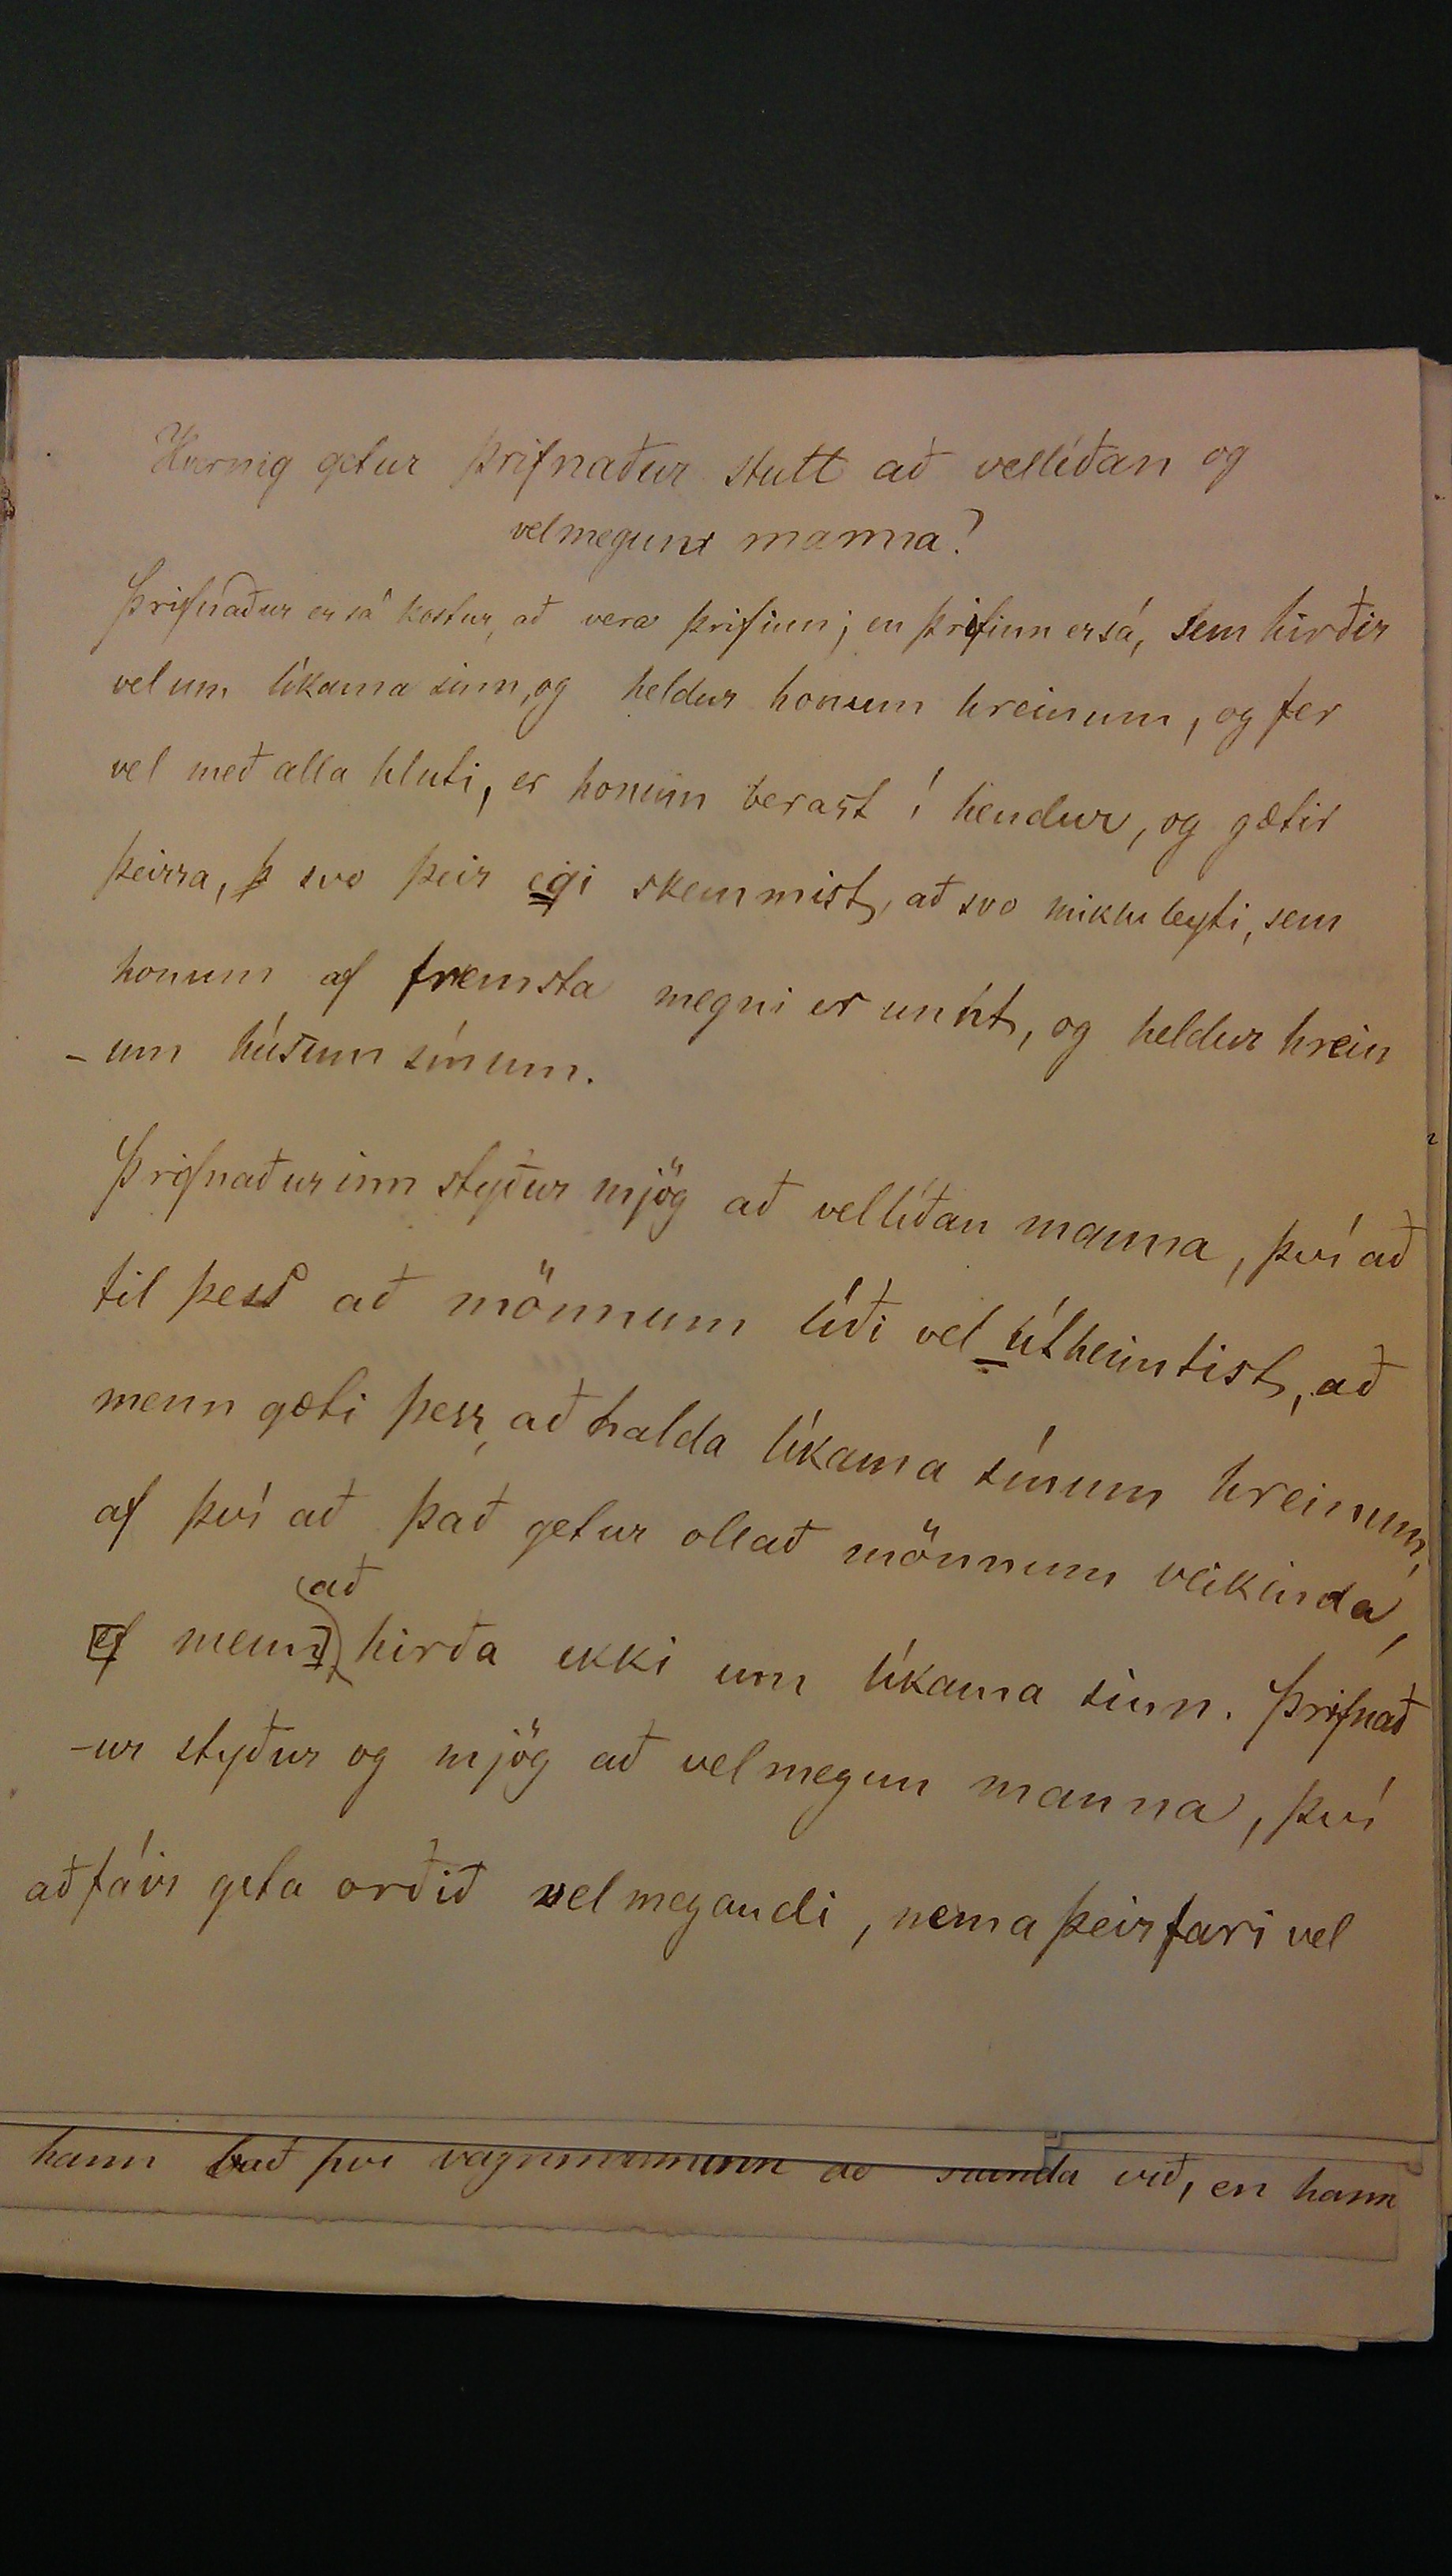 Hvernig getur þrifnaður stutt að vellíðan og
velmegun manna?
Þrifnaður er sá kostur, að vera þrifinn; en þrifinn er sá, sem hirðir
vel um líkama sinn, og heldur honum hreinum, og fer
vel með alla hluti, er honum berast í hendur, og gætir
þeirra, þ svo þeir eigi skemmist, að svo miklu leyti, sem
honum af fremsta megni er unnt, og heldur hrein
-um húsum sínum.
Þrifnaðurinn styður mjög að vellíðan manna, því að
til þess að mönnum líði vel útheimtist, að
menn gæti þess, að halda líkama sínum hreinum,
af því að það getur ollað mönnum veikinda,
að
ef menn hirða ekki um líkama sinn. Þrifnað
-ur styður og mjög að velmegun manna, því
að fáir geta orðið velmegandi, nema þeir fari vel
hann bað því vagnmanninn að standa við, en hann